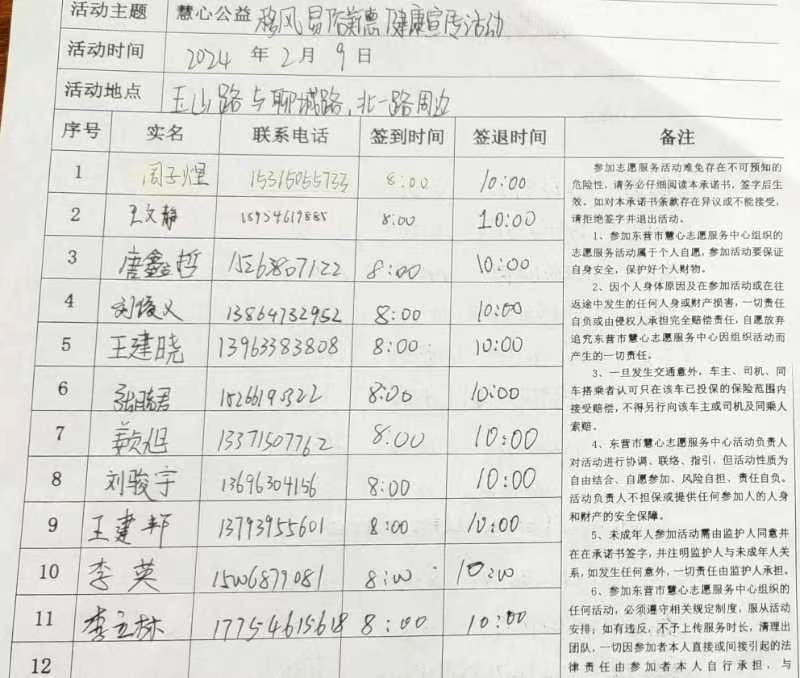 活动主题 慧心公益 移风易俗新德健康宣传活动
活动时间 2024 年 2 月 9 日
活动地点 玉山路与聊城路,北一路周边
序号 实名 联系电话 签到时间 签退时间 备注
1 周子煜 15315055733 8:00 10:00
2 王文静 15954619885 8:00 10:00
3 唐鑫哲 15263807122 8:00 10:00
4 刘俊义 13864732952 8:00 10:00
5 王建晓 13963383808 8:00 10:00
6 8:00 10:00
7 姜旭 13371507762 8:00 10:00
8 刘骏宇 13696304156 8:00 10:00
9 王建邦 13793955601 8:00 10:00
10 李英 15006879081 8:00 10:00
11 李立林 17754615618 8:00 10:00
12
参加志愿服务活动难免存在不可预知的
危险性,请务必仔细阅读本承诺书,签字后生
效。如对本承诺书条款存在异议或不能接受,
请拒绝签字并退出活动。
1、参加东营市慧心志愿服务中心组织的
志愿服务活动属于个人自愿,参加活动要保证
自身安全,保护好个人财物。
2、因个人身体原因及在参加活动或在往
返途中发生的任何人身或财产损害,一切责任
自负或由侵权人承担完全赔偿责任,自愿放弃
追究东营市慧心志愿服务中心因组织活动而
产生的一切责任。
3、一旦发生交通意外,车主、司机、同
车搭乘者认可只在该车已投保的保险范围内
接受赔偿,不得另行向该车主或司机及同乘人
索赔。
4、东营市慧心志愿服务中心活动负责人
对活动进行协调、联络、指引,但活动性质为
自由结合、自愿参加、风险自担、责任自负。
活动负责人不担保或提供任何参加人的人身
和财产的安全保障。
5、未成年人参加活动需由监护人同意并
在在承诺书签字,并注明监护人与未成年人关
系,如发生任何意外,一切责任由监护人承担。
6、参加东营市慧心志愿服务中心组织的
任何活动,必须遵守相关规定制度,服从活动
安排;如有违反,不予上传服务时长,清理出
团队,一切因参加者本人直接或间接引起的法
律责任由参加者本人自行承担,与